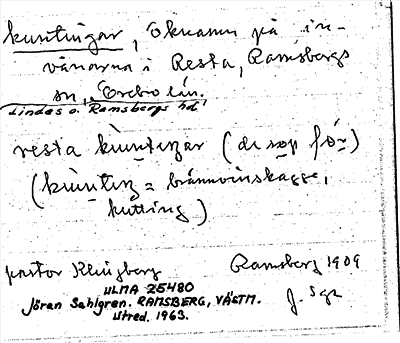 kuntingar, öknamn på in-
vånarna i Resta, Ramsbergs
sn, Örebro län.
Lindes o. Ramsbergs hd,
resta kùntiŋar (de sop fö́r)
(kùntiŋ = brännvinskagge,
kutting)
pastor Klingberg Ramsberg 1909
ULMA 25480 J. Sgn
Jöran Sahlgren. RAMSBERG, VÄSTM.
Utred. 1963.